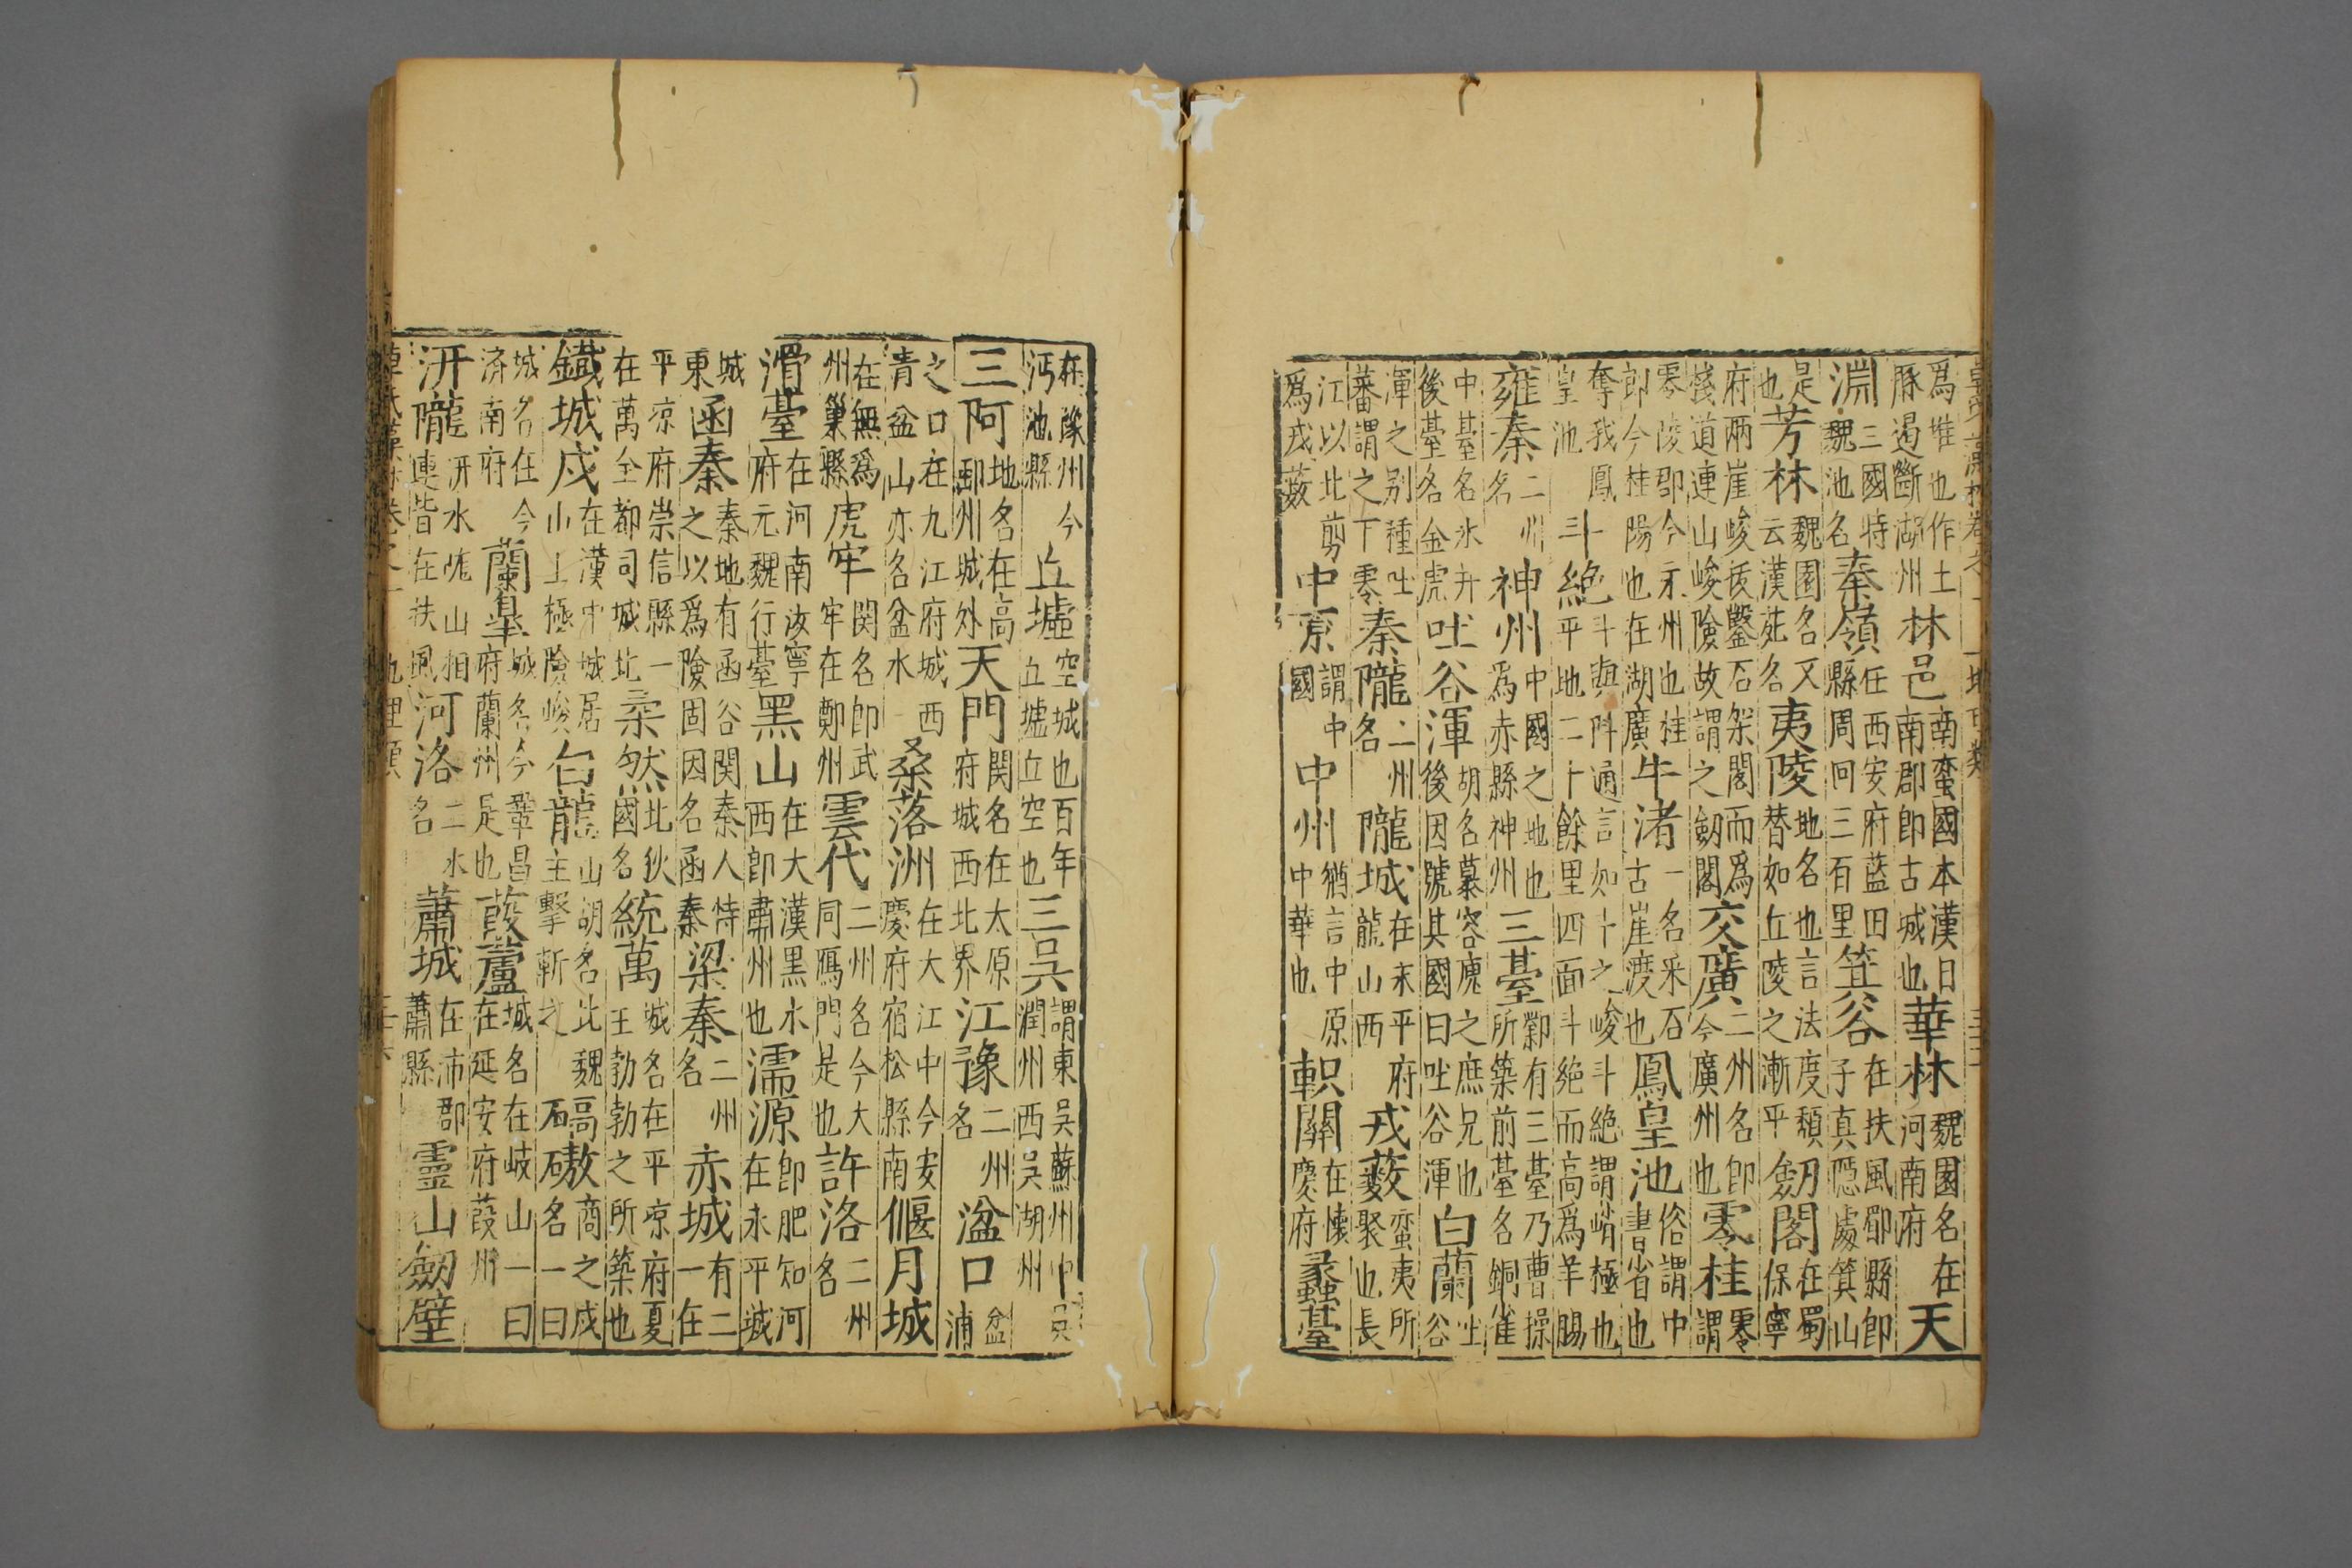 爲堆也作土豚遏斷湖州林邑南蠻國本漢日南郡即古城也華林魏國名在河南府天
淵三國特魏池名秦嶺在西安府藍田縣周回三百里箕谷在扶風郿縣即子真隱處箕山
是也芳林魏園名又云漢苑名夷陵地名也言法度頹替如丘陵之漸平劒閣在蜀保寧
府兩崖峻拔鑿石架閣而爲棧道連山峻險故謂之劒閣交廣二州名即今廣州也零桂零謂
零陵郡今永州也桂即今桂陽也在湖廣牛渚一名采石古崖渡也鳳皇池俗謂中書省也
奪我鳳皇池斗絶斗與阧通言如斗之峻斗絶謂峭極也平地二十餘里四面斗絶而高爲羊腸
雍秦二州名神州中國之地也爲赤縣神州三臺鄴有三臺乃曹操所築前臺名銅雀
中臺名氷井後臺名金虎吐谷渾胡名慕容廆之庶兄也後因號其國曰吐谷渾白蘭吐谷
渾之别種吐蕃謂之下零秦隴二州名隴城在永平府龍山西戎薮蠻夷所聚也長
江以北剪爲戎薮中原謂中國中州猶言中原中華也軹關在懷慶府蠡臺
在豫州今沔池縣丘墟空城也百年丘墟丘空也三吳謂東吳蘇州中吳潤州西吳湖州
三阿地名在高郵州城外天門関名在太原府城西北界江豫二州名湓口盆浦
之口在九江府城西青盆山亦名盆水桑落洲在大江中今安慶府宿松縣南偃月城
在無爲州巢縣虎牢関名即武牢在鄭州雲代二州名今大同鴈門是也許洛二州名
滑臺在河南汝寧府元魏行臺黑山在大漢黑水西即肅州也濡源即肥知河在永平城
城東函秦秦地有函谷関秦人恃之以爲險固因名函秦梁秦二州名赤城有二一在
平凉府崇信縣一在萬全都司城北柔然北狄國名統萬城名在平凉府夏王勃勃之所築也
鐡城戍在漢中城居山上極險峻白龍山胡名北魏主擊斬之碻磝商之戍名一曰
城名在今濟南府蘭皐城名今鞏昌府蘭州是也葭蘆城名在岐山一曰在延安府葭州
汧隴汧水隗山相連皆在扶風河洛二水名蕭城在沛郡蕭縣靈山劒壁